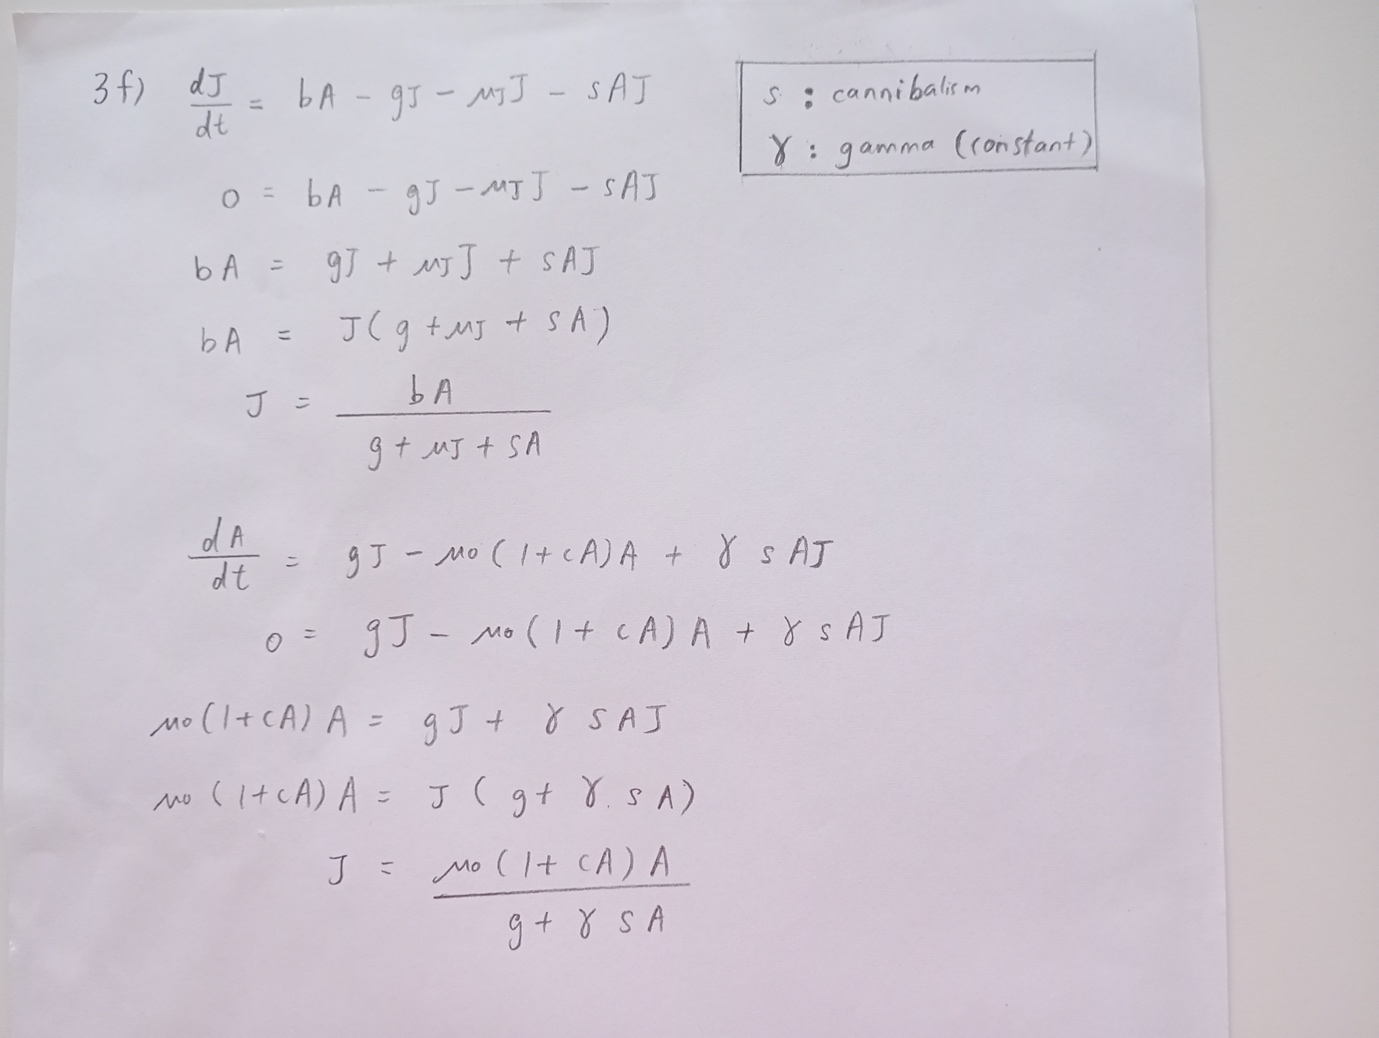 3f) dJ/dt = bA - gJ - μJJ - sAJ
s : cannibalism
γ : gamma (constant)
0 = bA - gJ - μJJ - sAJ
bA = gJ + μJJ + sAJ
bA = J(g + μJ + sA)
J = bA / g + μJ + sA
dA/dt = gJ - μ0(1+cA)A + γ sAJ
0 = gJ - μ0(1+cA)A + γ sAJ
μ0(1+cA)A = gJ + γ sAJ
μ0(1+cA)A = J(g + γ.sA)
J = μ0(1+cA)A / g + γ sA